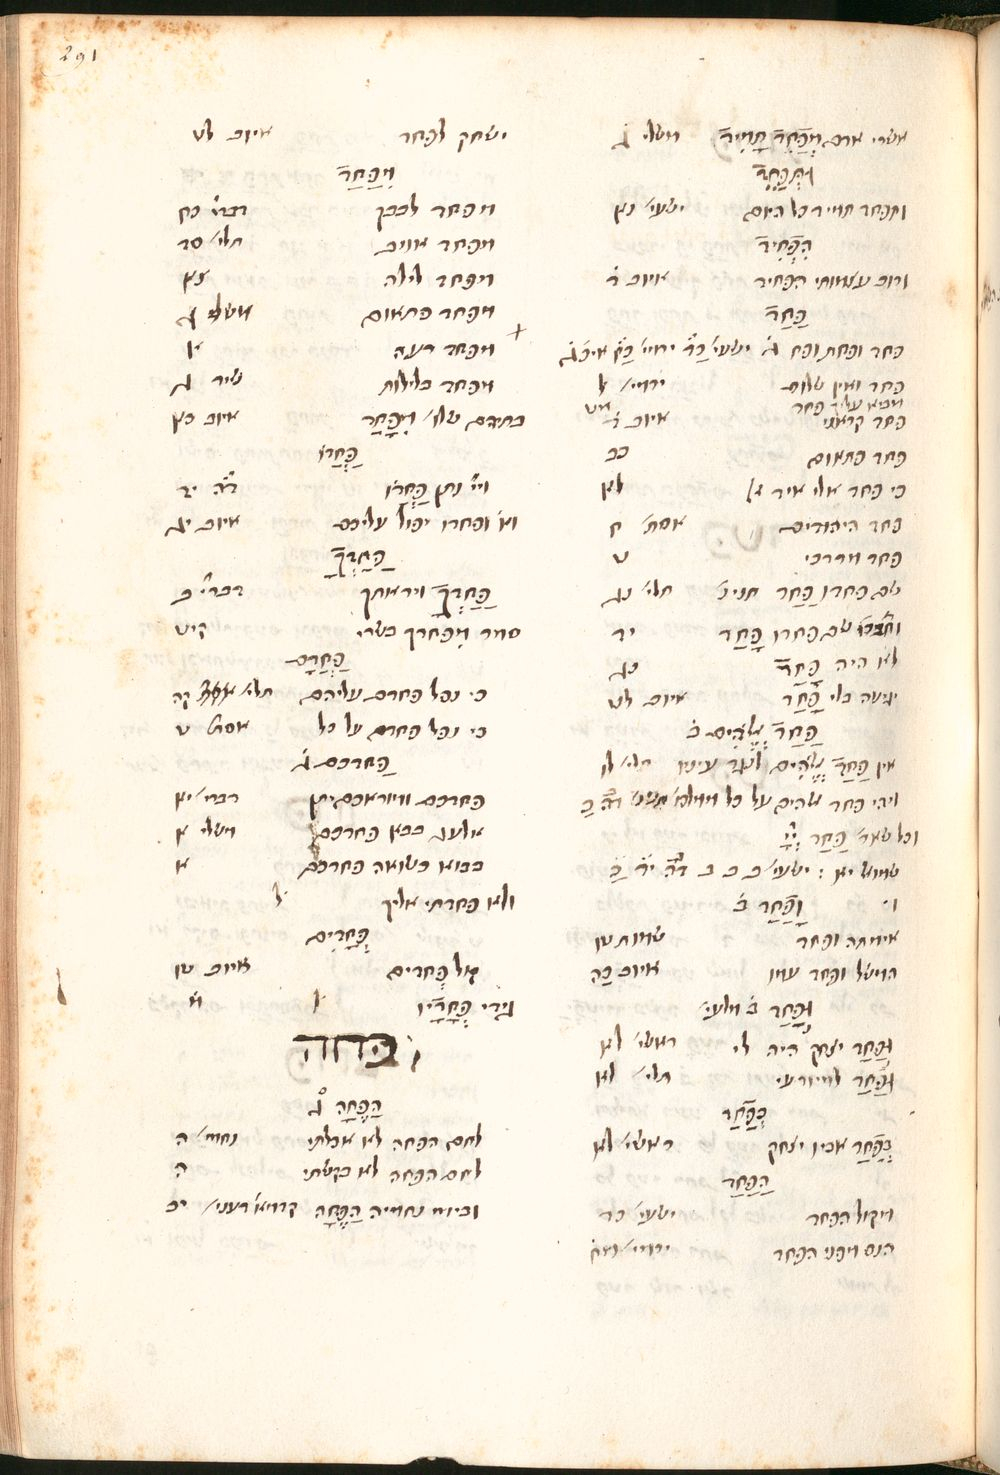 291
אשרי אדם מְפַחֵד תָּמִיד משלי
וַתְּפַחֵד
ותפחד תמיד כל היום ישעי׳ נא
הִפְחִיד
ורוב עצמותי הפחיד איוב ד
פַּחַד
פחד ופחת ופח ג ישעי׳ כד ירמי׳
פחד ואין שלום ירמי׳ ל
מביא עליך פחד מט
פחד קראני איוב ד
פחד פתאום כב
כי פחד אלי איד אל לא
פחד היהודים אסת׳ ח
פחד מרדכי ט
שם פחדו פַחַד תלי׳ נג
שם פחדו פָּחַד יד
לא היה פָחַד נג
יגיעה בלי פָחַד איוב לט
פַּחַד אֱלֹהִים ב
אין פַּחַד אֱלֹהִים לנגד עיניו תלי׳ לו
ויהי פחד אלהים על כל
וכל שאר׳ פַּחַד יְיָ
שמואל יא : ישעי׳ ב ב ב
וָפַחַד ב
אימתה ופחד שמות טו
המשל ופחד עמו איוב כה
וּפַחַד ב מלעי׳
וּפַחַד יצחק היה לי ראשי׳ לא
וּפַחַד למיודעי תלי׳ לא
בְּפַחַד
בְּפַחַד אביו יצחק ראשי׳ לא
הַפַּחַד
מקול הפחד ישעי׳ כד
הנס מפני הפחד ירמי׳ מח
ישחק לפחד איוב לט
מִפַּחַד
מפחד לבבך דברי׳ כח
מפחד אויב תלי׳ סד
מפחד לילה צא
מפחד פתאום משלי ג
מפחד רעה א
מפחד בלילות שיר ג
בתיהם שלו׳ מִפָּחַד איוב כא
פַּחְדּוֹ
ויי׳ נתן פַּחְדּוֹ דה יד
ופחדו יפול עליכם איוב יג
פַּחְדְּךָ
פַּחְדְּךָ ויראתך דברי׳ ב
סמר מִפַּחְדְּךָ בשרי קיט
פַּחְדָּם
כי נפל פחדם עליהם תלי׳ קה
כי נפל פחדם על כל אסת׳ ט
פַּחְדְּכֶם ג
פחדכם ומוראכם יתן דברי׳ יא
אלעג בבא פחדכם משלי א
בבוא כשואה פחדכם א
ולא פחדתי אליך
פְּחָדִים
קול פְּחָדִים איוב טו
גידי פַחֲדָיו מ
פחה
הַפֶּחָה ג
לחם הפחה לא אכלתי נחמי׳ ה
לחם הפחה לא בקשתי ה
ובימי נחמיה הַפֶּחָה יב